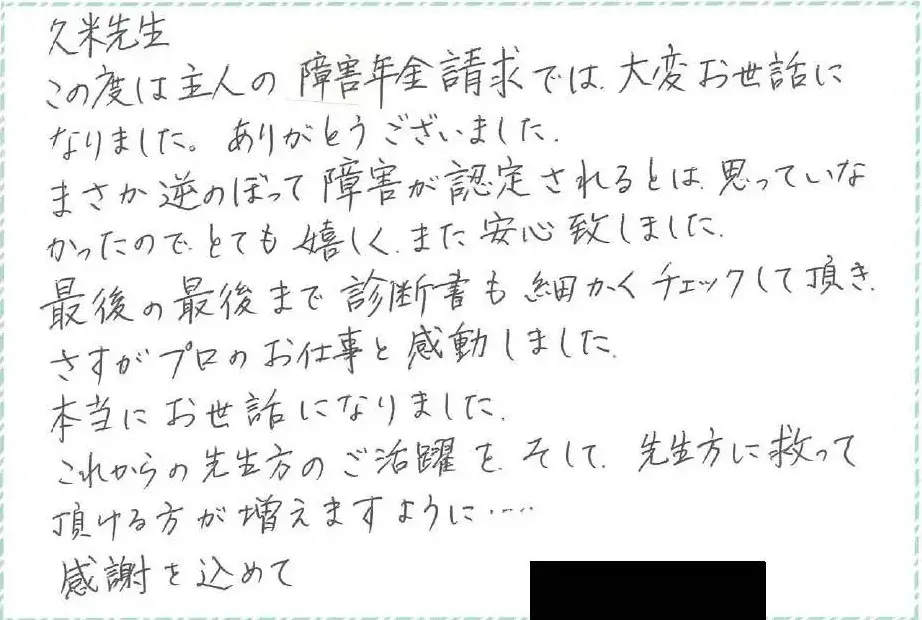 久米先生
この度は主人の障害年金請求では、大変お世話に
なりました。ありがとうございました。
まさか逆のぼって障害が認定されるとは、思っていな
かったので、とても嬉しく、また安心致しました。
最後の最後まで診断書も細かくチェックして頂き、
さすがプロのお仕事と感動しました。
本当にお世話になりました。
これからの先生方のご活躍を、そして、先生方に救って
頂ける方が増えますように‥‥
感謝を込めて